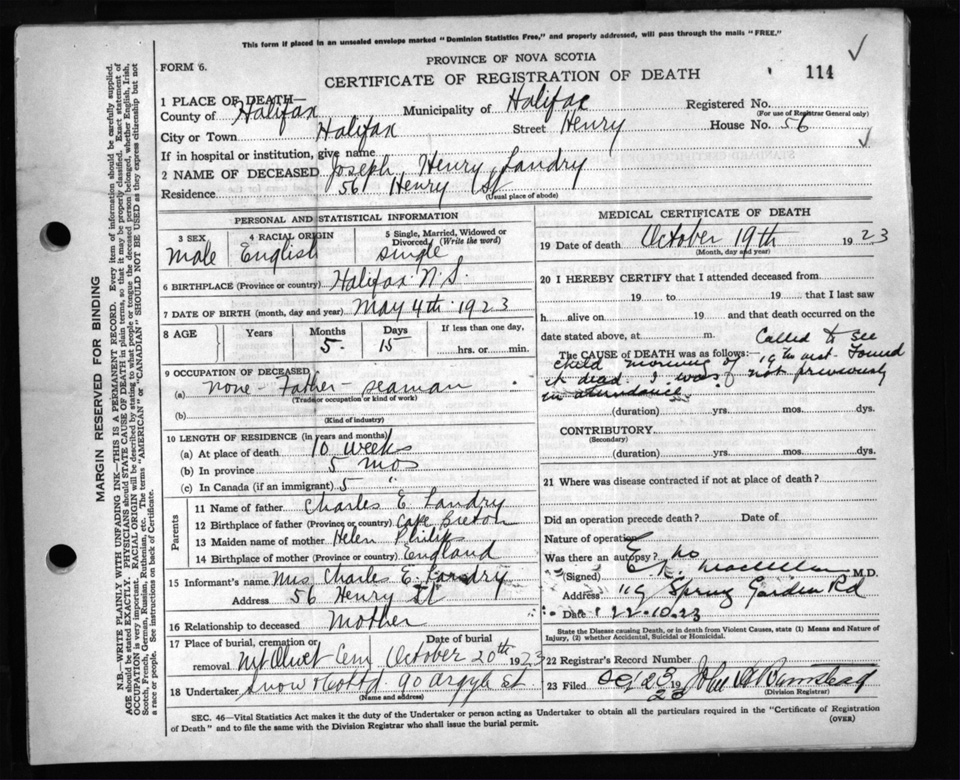 This form if placed in an unsealed envelope marked "Dominion Statistics Free," and properly addressed, will pass through the mails "FREE."
PROVINCE OF NOVA SCOTIA
FORM 6.
CERTIFICATE OF REGISTRATION OF DEATH
114
1 PLACE OF DEATH—
County of Halifax Municipality of Halifax Registered No.
(For use of Registrar General only)
City or Town Halifax Street Henry House No. 56
If in hospital or institution, give name
2 NAME OF DECEASED Joseph Henry Landry
Residence 56 Henry St
(Usual place of abode)
PERSONAL AND STATISTICAL INFORMATION
3 SEX 4 RACIAL ORIGIN 5 Single, Married, Widowed or Divorced (Write the word)
Male English single
6 BIRTHPLACE (Province or country) Halifax N.S.
7 DATE OF BIRTH (month, day and year) May 4th 1923
8 AGE Years Months Days If less than one day,
5 15 hrs. or min.
9 OCCUPATION OF DECEASED
(a) none - Father - seaman
(Trade or occupation or kind of work)
(b)
(Kind of industry)
10 LENGTH OF RESIDENCE (in years and months)
(a) At place of death 10 weeks
(b) In province 5 mos
(c) In Canada (if an immigrant) 5 "
Parents
11 Name of father Charles E Landry
12 Birthplace of father (Province or country) Cape Breton
13 Maiden name of mother Helen
14 Birthplace of mother (Province or country) England
15 Informant's name Mrs Charles E. Landry
Address 56 Henry St
16 Relationship to deceased Mother
17 Place of burial, cremation or removal Date of burial
Mt Olivet Cem October 20th 1923
18 Undertaker Snow & Co Ltd 90 Argyle St.
(Name and address)
MEDICAL CERTIFICATE OF DEATH
19 Date of death October 19th 1923
(Month, day and year)
20 I HEREBY CERTIFY that I attended deceased from
19 to 19 that I last saw
h alive on 19 and that death occurred on the
date stated above, at m. Called to see
The CAUSE OF DEATH was as follows:—
child morning of 19th inst. Found
it dead. I was not previously
in attendance
(duration) yrs. mos. dys.
CONTRIBUTORY
(Secondary)
(duration) yrs. mos. dys.
21 Where was disease contracted if not at place of death?
Did an operation precede death? Date of
Nature of operation
Was there an autopsy? no
(Signed) M.D.
Address 119 Spring Garden Rd
Date 22-10-23
State the Disease causing Death, or in death from Violent Causes, state (1) Means and Nature of Injury, (2) whether Accidental, Suicidal or Homicidal.
22 Registrar's Record Number
23 Filed Oct 23 1923 John
(Division Registrar)
SEC. 46—Vital Statistics Act makes it the duty of the Undertaker or person acting as Undertaker to obtain all the particulars required in the "Certificate of Registration
of Death" and to file the same with the Division Registrar who shall issue the burial permit.
(OVER)
MARGIN RESERVED FOR BINDING
N.B.—WRITE PLAINLY WITH UNFADING INK—THIS IS A PERMANENT RECORD. Every item of information should be carefully supplied.
AGE should be stated EXACTLY. PHYSICIANS should STATE CAUSE OF DEATH in plain terms, so that it may be properly classified. Exact statement of
OCCUPATION is very important. RACIAL ORIGIN will be described by stating to what people or tongue the deceased person belonged, whether English, Irish,
Scotch, French, German, Russian, Ruthenian, etc. The terms "AMERICAN" or "CANADIAN" SHOULD NOT BE USED as they express citizenship but not
a race or people. See instructions on back of Certificate.